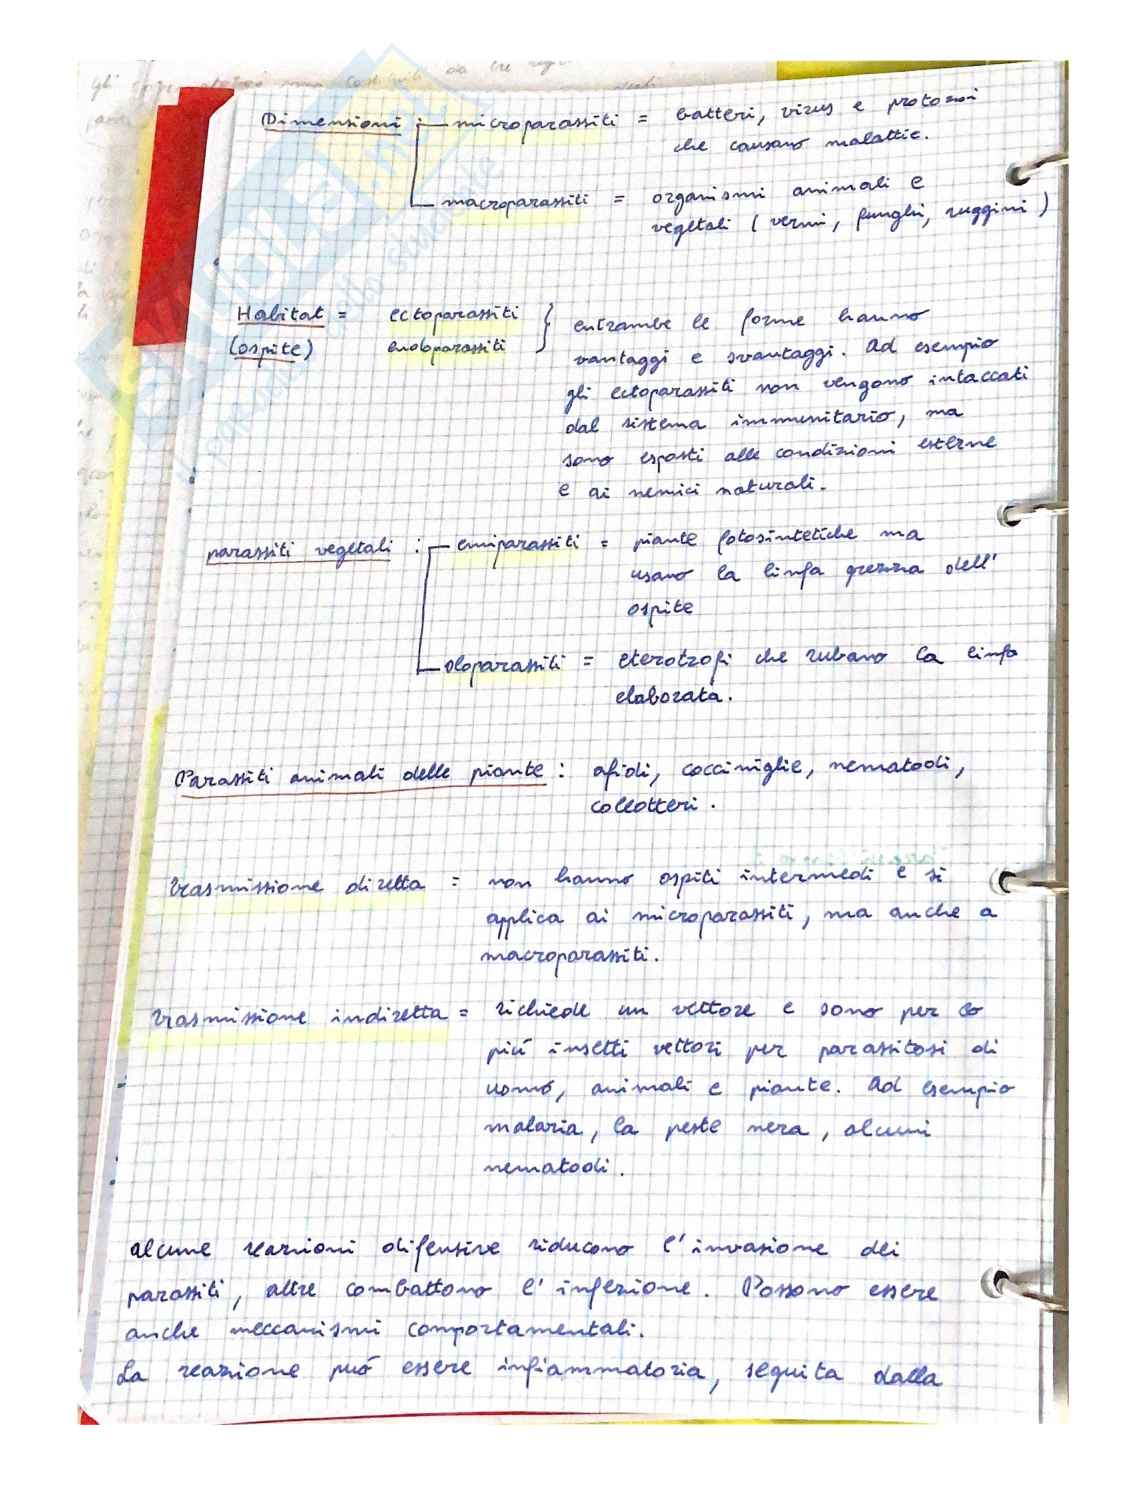 Dimensioni : microparassiti = batteri, virus e protozoi
che causano malattie.
macroparassiti = organismi animali e
vegetali (vermi, funghi, ruggini)
Habitat = ectoparassiti
(ospite) endoparassiti
entrambe le forme hanno
vantaggi e svantaggi. Ad esempio
gli ectoparassiti non vengono intaccati
dal sistema immunitario, ma
sono esposti alle condizioni esterne
e ai nemici naturali.
parassiti vegetali : emiparassiti = piante fotosintetiche ma
usano la linfa grezza dell'
ospite
oloparassiti = eterotrofi che rubano la linfa
elaborata.
Parassiti animali delle piante : afidi, cocciniglie, nematodi,
collotteri.
Trasmissione diretta = non hanno ospiti intermedi e si
applica ai microparassiti, ma anche a
macroparassiti.
Trasmissione indiretta = richiede un vettore e sono per lo
più insetti vettori per parassitosi di
uomo, animali e piante. Ad esempio
malaria, la peste nera, alcuni
nematodi.
alcune reazioni difensive riducono l'invasione dei
parassiti, altre combattono l'infezione. Possono essere
anche meccanismi comportamentali.
La reazione può essere infiammatoria, seguita dalla